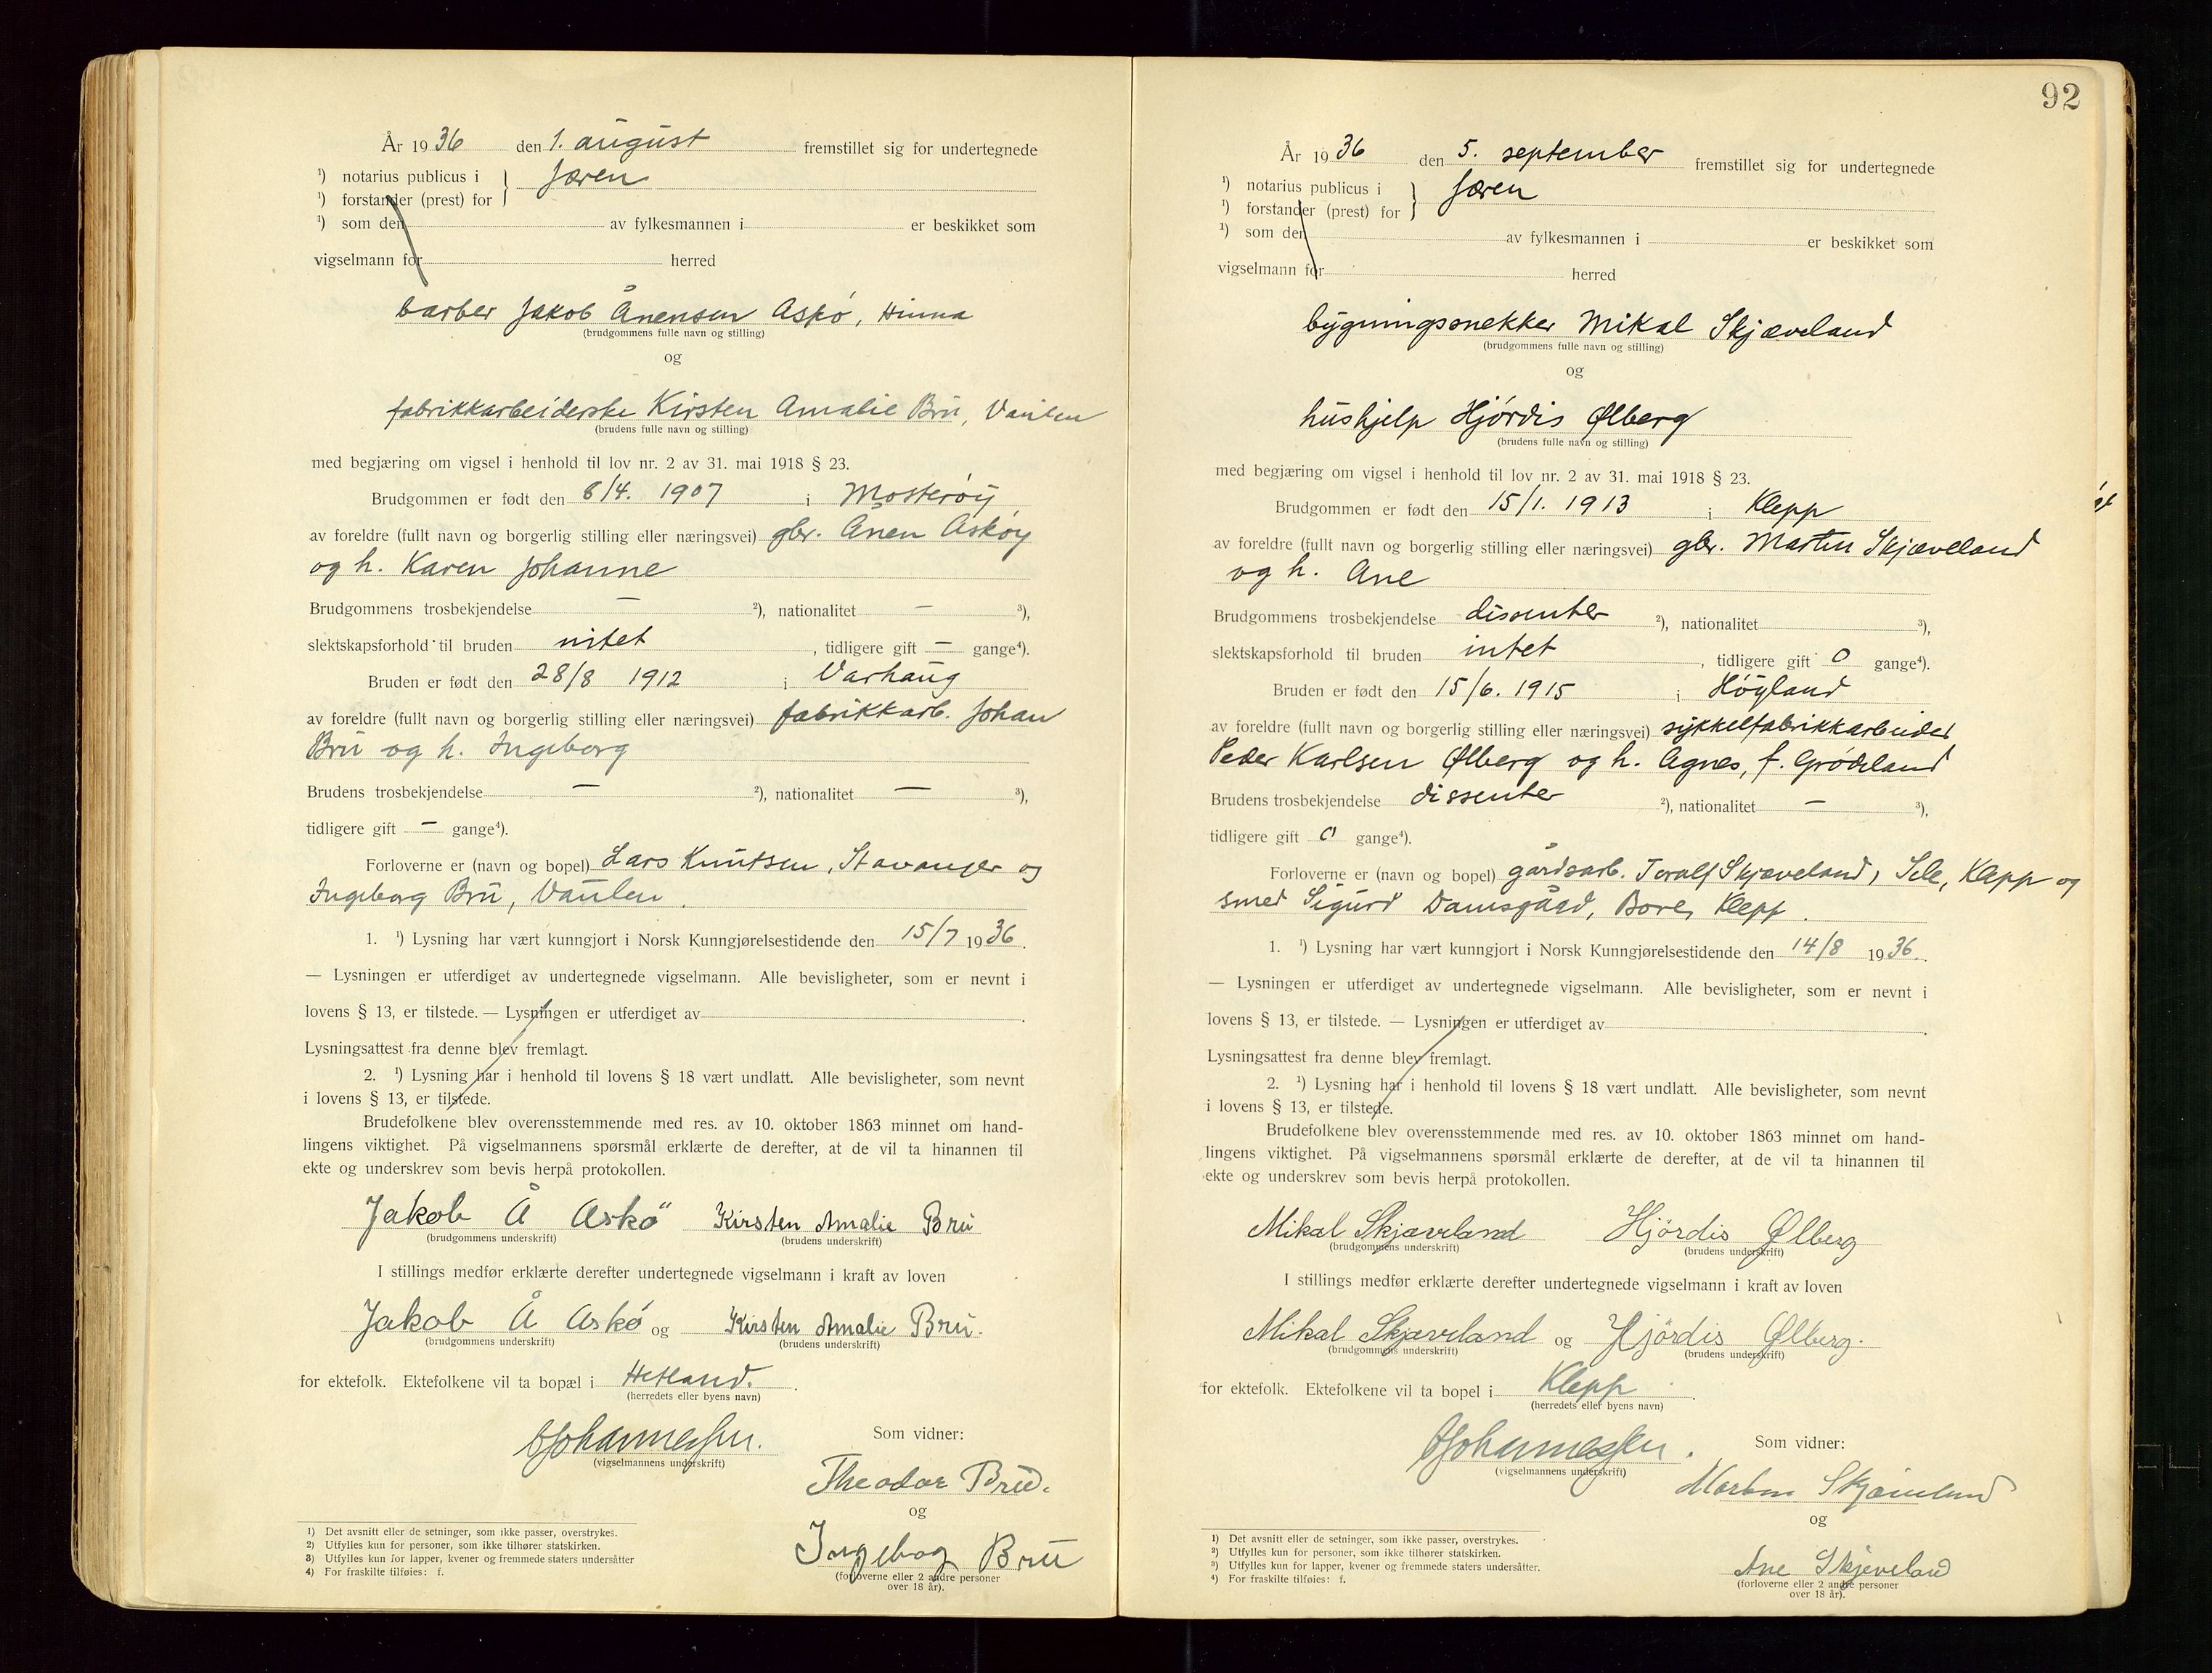 År 1936 den 1. august fremstillet sig for undertegnede
¹) notarius publicus i } Jæren
¹) forstander (prest) for
¹) som den av fylkesmannen i er beskikket som
vigselmann for herred
barber Jakob Ånensen Askø, Hinna
(brudgommens fulle navn og stilling)
og
fabrikkarbeiderske Kirsten Amalie Bru, Vaulen
(brudens fulle navn og stilling)
med begjæring om vigsel i henhold til lov nr. 2 av 31. mai 1918 § 23.
Brudgommen er født den 8/4. 1907 i Mosterøy
av foreldre (fullt navn og borgerlig stilling eller næringsvei) gbr. Ånen Askøy
og h. Karen Johanne
Brudgommens trosbekjendelse — ²), nationalitet — ³),
slektskapsforhold til bruden intet , tidligere gift — gange⁴).
Bruden er født den 28/8 1912 i Varhaug
av foreldre (fullt navn og borgerlig stilling eller næringsvei) fabrikkarb. Johan
Bru og h. Ingeborg
Brudens trosbekjendelse — ²), nationalitet — ³),
tidligere gift — gange⁴).
Forloverne er (navn og bopel) Lars Knutsen, Stavanger og
Ingeborg Bru, Vaulen.
1. ¹) Lysning har vært kunngjort i Norsk Kunngjørelsestidende den 15/7 1936.
— Lysningen er utferdiget av undertegnede vigselmann. Alle bevisligheter, som er nevnt i
lovens § 13, er tilstede. — Lysningen er utferdiget av .
Lysningsattest fra denne blev fremlagt.
2. ¹) Lysning har i henhold til lovens § 18 vært undlatt. Alle bevisligheter, som nevnt
i lovens § 13, er tilstede.
Brudefolkene blev overensstemmende med res. av 10. oktober 1863 minnet om hand-
lingens viktighet. På vigselmannens spørsmål erklærte de derefter, at de vil ta hinannen til
ekte og underskrev som bevis herpå protokollen.
Jakob Å Askö Kirsten Amalie Bru
(brudgommens underskrift) (brudens underskrift)
I stillings medfør erklærte derefter undertegnede vigselmann i kraft av loven
Jakob Å Askø og Kirsten Amalie Bru.
(brudgommens underskrift) (brudens underskrift)
for ektefolk. Ektefolkene vil ta bopæl i Hetland.
(herredets eller byens navn)
Johannessen. Som vidner:
(vigselmannens underskrift)
Theodor Bru.
og
Ingeborg Bru
(forloverne eller 2 andre personer
over 18 år).
1) Det avsnitt eller de setninger, som ikke passer, overstrykes.
2) Utfylles kun for personer, som ikke tilhører statskirken.
3) Utfylles kun for lapper, kvener og fremmede staters undersåtter
4) For fraskilte tilføies: f.
92
År 1936 den 5. september fremstillet sig for undertegnede
¹) notarius publicus i } Jæren
¹) forstander (prest) for
¹) som den av fylkesmannen i er beskikket som
vigselmann for herred
bygningssnekker Mikal Skjæveland
(brudgommens fulle navn og stilling)
og
hushjelp Hjørdis Ølberg
(brudens fulle navn og stilling)
med begjæring om vigsel i henhold til lov nr. 2 av 31. mai 1918 § 23.
Brudgommen er født den 15/1. 1913 i Klepp
av foreldre (fullt navn og borgerlig stilling eller næringsvei) gbr. Martin Skjæveland
og h. Ane
Brudgommens trosbekjendelse dissenter ²), nationalitet ³),
slektskapsforhold til bruden intet , tidligere gift 0 gange⁴).
Bruden er født den 15/6. 1915 i Høyland
av foreldre (fullt navn og borgerlig stilling eller næringsvei) sykkelfabrikkarbeider
Peder Karlsen Ølberg og h. Agnes, f. Grødeland
Brudens trosbekjendelse dissenter ²), nationalitet — ³),
tidligere gift 0 gange⁴).
Forloverne er (navn og bopel) gårdsarb. Toralf Skjæveland, Sele, Klepp og
smed Sigurd Damsgård, Bore, Klepp.
1. ¹) Lysning har vært kunngjort i Norsk Kunngjørelsestidende den 14/8 1936.
— Lysningen er utferdiget av undertegnede vigselmann. Alle bevisligheter, som er nevnt i
lovens § 13, er tilstede. — Lysningen er utferdiget av .
Lysningsattest fra denne blev fremlagt.
2. ¹) Lysning har i henhold til lovens § 18 vært undlatt. Alle bevisligheter, som nevnt
i lovens § 13, er tilstede.
Brudefolkene blev overensstemmende med res. av 10. oktober 1863 minnet om hand-
lingens viktighet. På vigselmannens spørsmål erklærte de derefter, at de vil ta hinannen til
ekte og underskrev som bevis herpå protokollen.
Mikal Skjæveland Hjördis Ølberg
(brudgommens underskrift) (brudens underskrift)
I stillings medfør erklærte derefter undertegnede vigselmann i kraft av loven
Mikal Skjæveland og Hjördis Ølberg.
(brudgommens underskrift) (brudens underskrift)
for ektefolk. Ektefolkene vil ta bopel i Klepp
(herredets eller byens navn)
Johannessen. Som vidner:
(vigselmannens underskrift)
Skjæveland
og
Ane Skjeveland
(forloverne eller 2 andre personer
over 18 år).
1) Det avsnitt eller de setninger, som ikke passer, overstrykes.
2) Utfylles kun for personer, som ikke tilhører statskirken.
3) Utfylles kun for lapper, kvener og fremmede staters undersåtter.
4) For fraskilte tilføies: f.